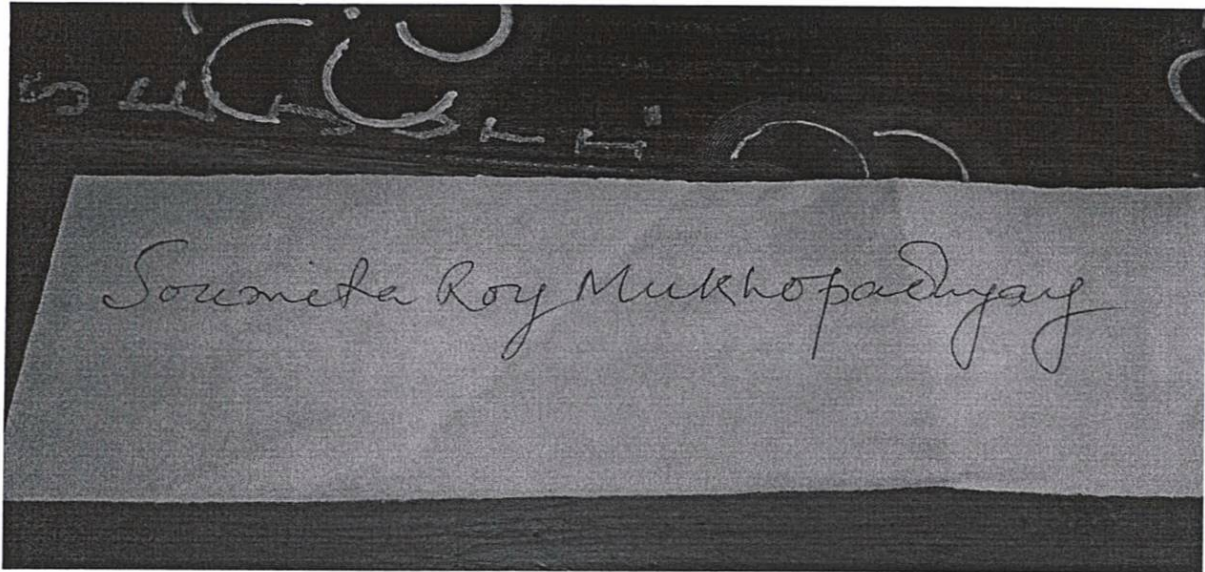 Soumita Roy Mukhopadhyay